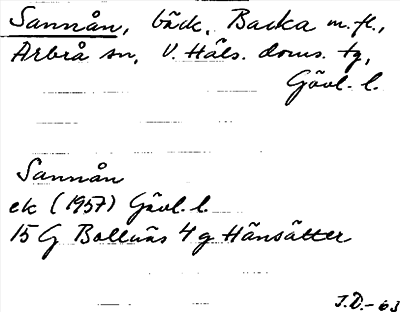 Sannån, bäck, Backa m.fl.,
Arbrå sn, V. Häls. doms. tg,
Gävl. l.
Sannån
ek (1957) Gävl. l.
15 G Bollnäs 4 g Hänsätter
J.D.-63